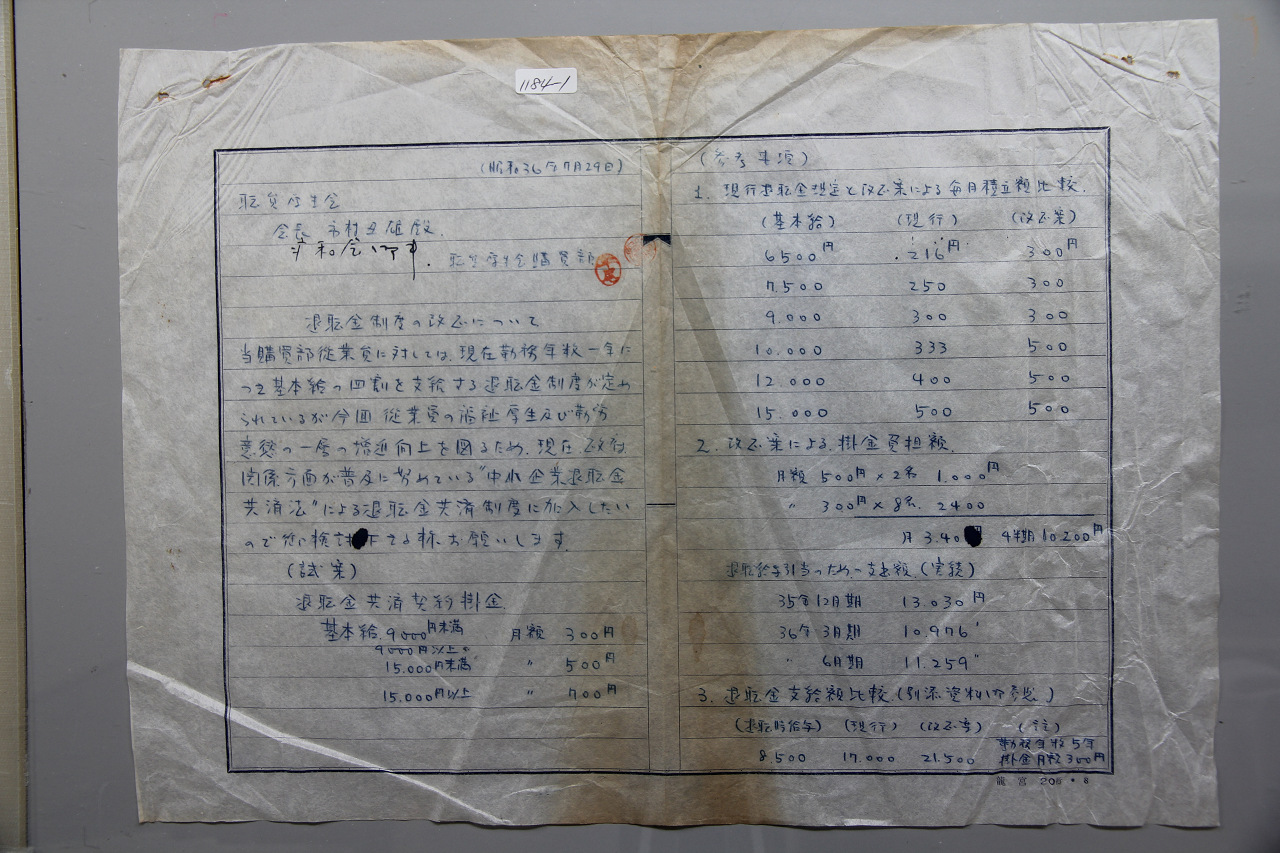 1184-1
(昭和36年7月29日)
職員厚生会
会長 市村 雄殿
共和会御中
職員厚生会購買部
退職金制度の改正について
当購買部従業員に対しては、現在勤務年数一年に
つき基本給の四割を支給する退職金制度が定め
られているが今回 従業員の福祉厚生及び勤労
意慾の一層の増進向上を図るため、現在、政府、
関係方面が普及に努めている"中小企業退職金
共済法"による退職金共済制度に加入したい
ので御検討下さる様お願いします。
(試案)
退職金共済契約掛金
基本給 9000円未満 月額 300円
9000円以上〃
15.000円未満 〃 500円
15.000円以上 〃 700円
(参考事項)
1. 現行退職金規定と改正案による毎月積立額比較.
(基本給) (現行) (改正案)
6500円 216円 300円
7.500 250 300
9.000 300 300
10.000 333 500
12.000 400 500
15.000 500 500
2. 改正案による掛金負担額.
月額 500円×2名 1.000円
〃 300円×8名. 2400
月 3.40 円 4半期 10.200円
退職給与引当のための支出額.(実績)
35年12月期 13.030円
36年 3月期 10.976〃
〃 6月期 11.259〃
3. 退職金支給額比較.(別添資料御参照)
(退職時給与) (現行) (改正案) (註)
8.500 17.000 21.500 勤務年数5年
掛金月額300円
龍宮 205・8